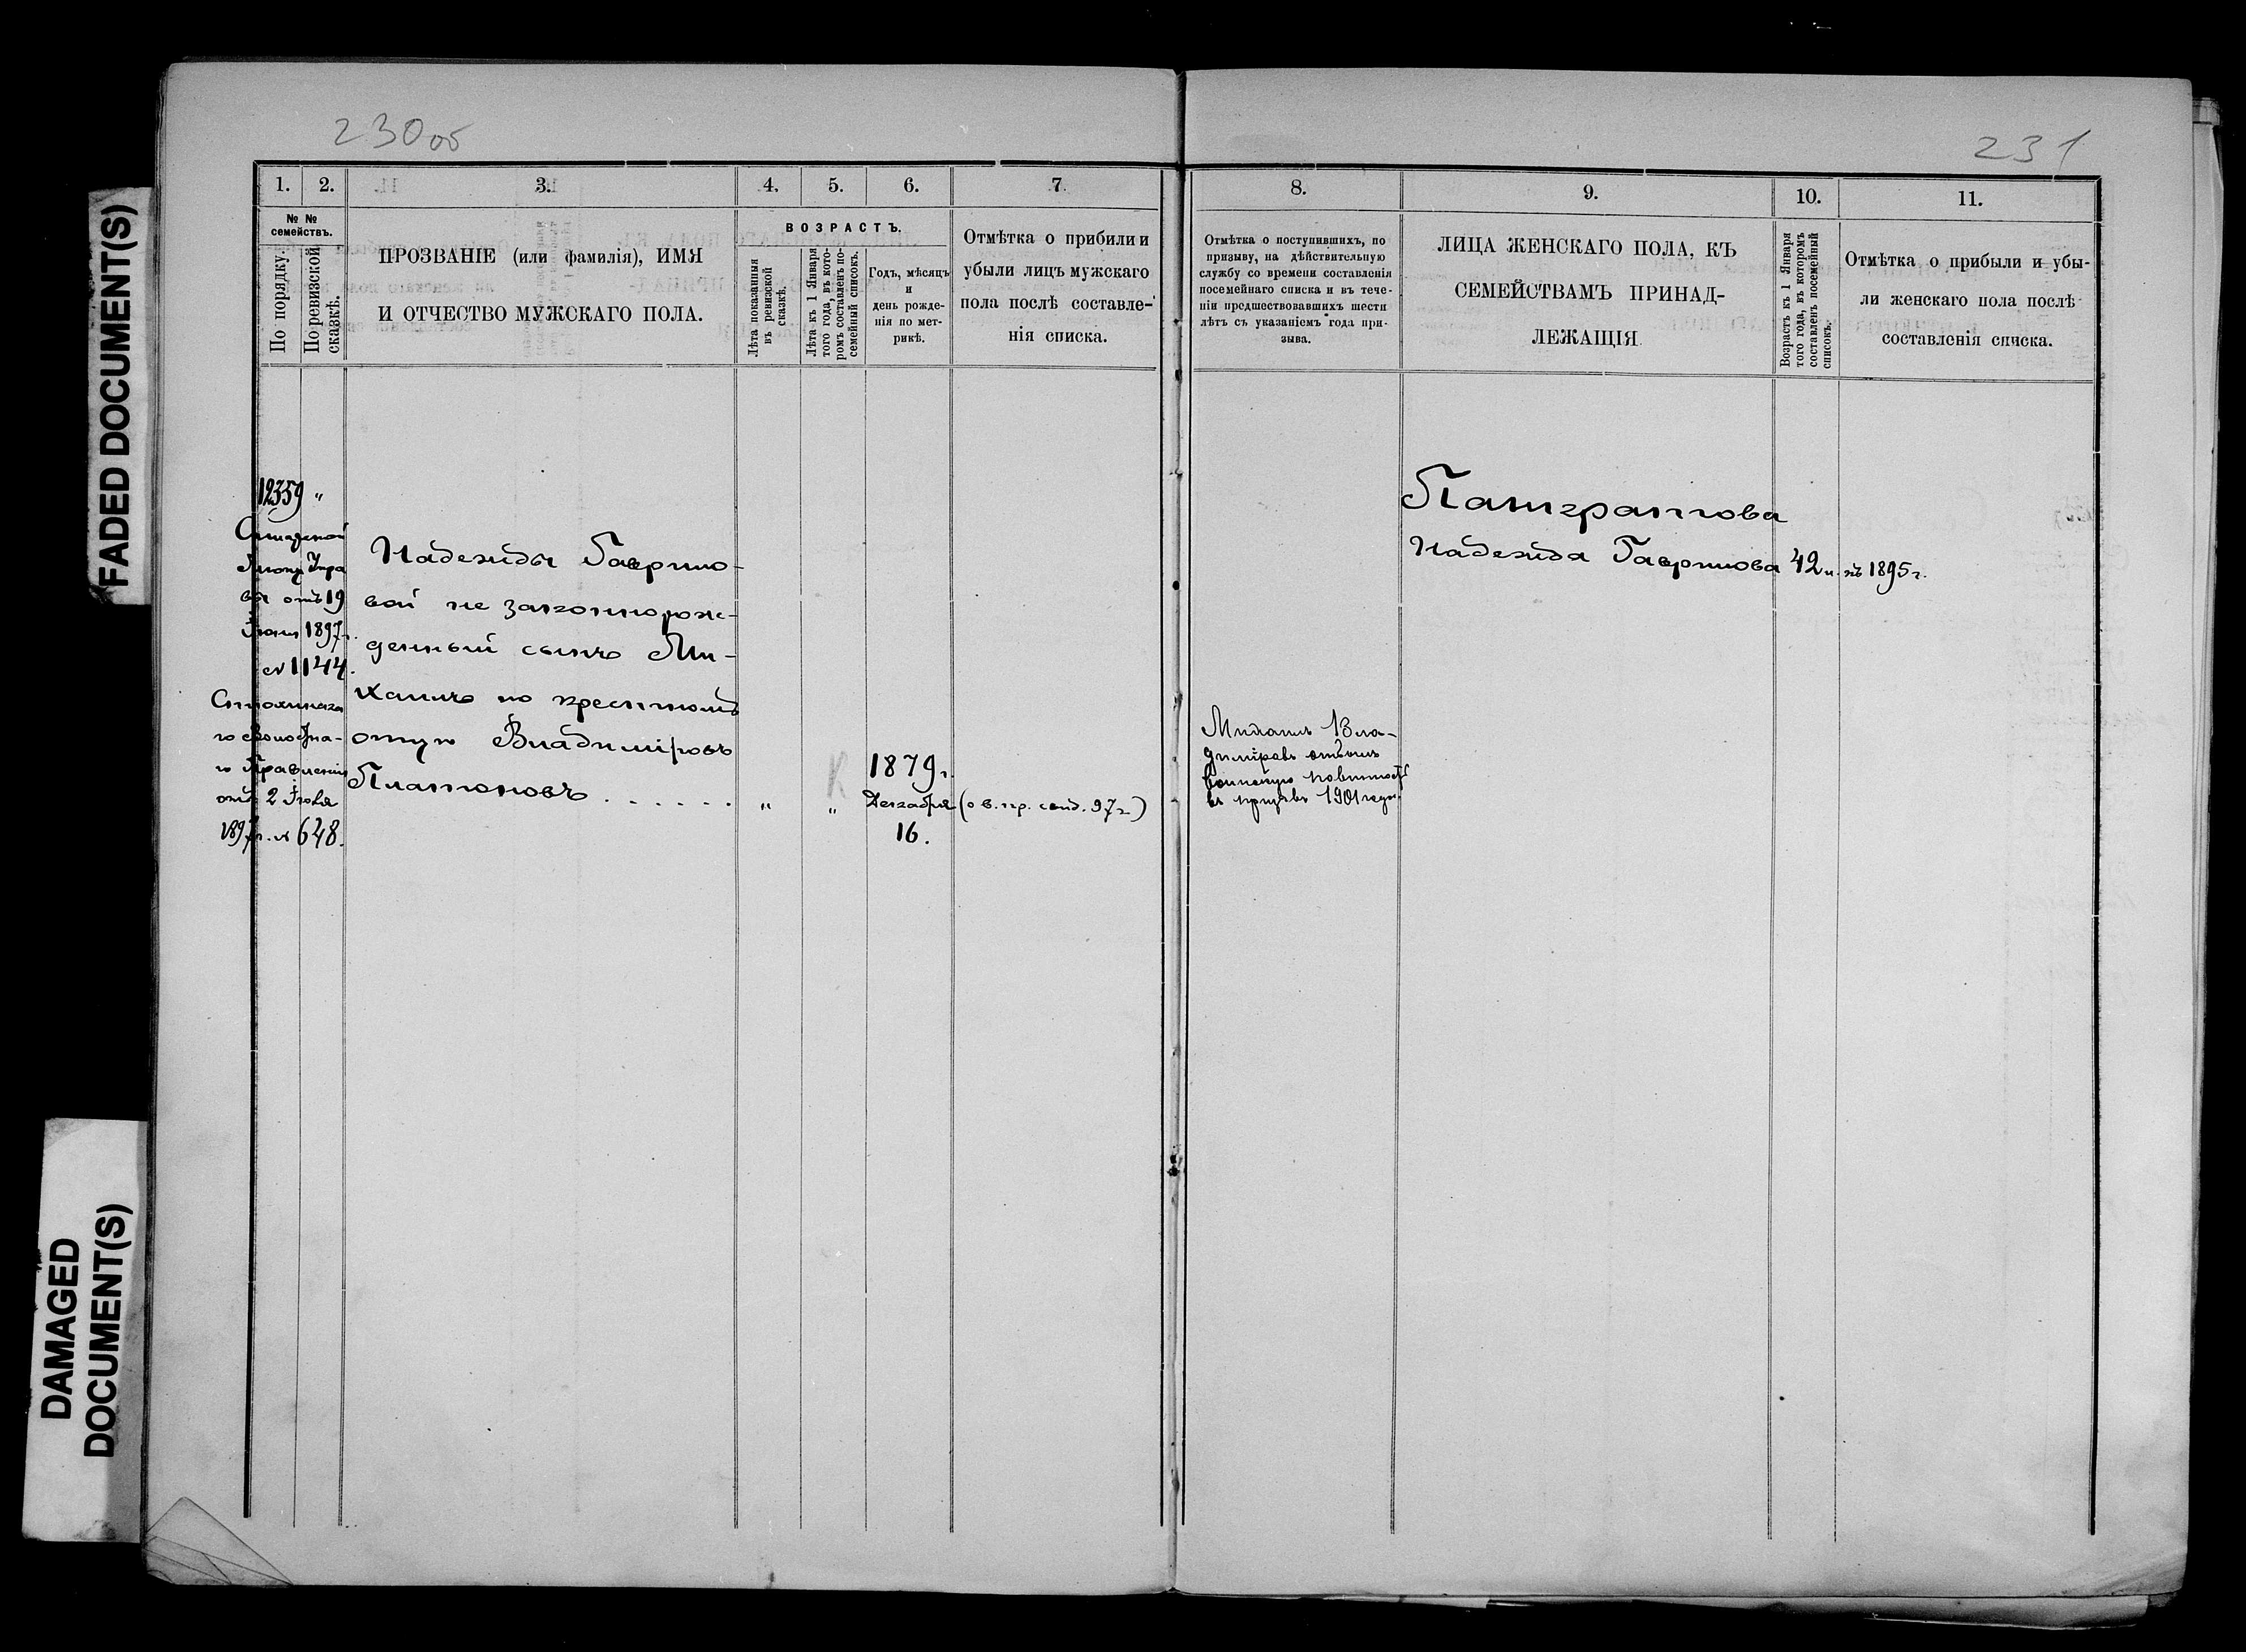 FADED DOCUMENT(S)
DAMAGED
DOCUMENT(S)
230об
1.
2.
3.
4.
5.
6.
7.
№ №
семействъ.
По порядку.
По ревизской
сказкѣ.
ПРОЗВАНІЕ (или фамилія), ИМЯ
И ОТЧЕСТВО МУЖСКАГО ПОЛА.
ВОЗРАСТЪ.
Лѣта показанныя
въ ревизской
сказкѣ.
Лѣта къ 1 Января
того года, въ кото-
ромъ составленъ по-
семейный списокъ.
Годъ, мѣсяцъ
и
день рожде-
нія по мет-
рикѣ.
Отмѣтка о прибыли и
убыли лицъ мужскаго
пола послѣ составле-
нія списка.
12359 "
отъ 19
1897 г.
№ 1144.
го Правленія
отъ 2 Іюля
1897 г. № 648.
Надежды Гаврило-
вой не законнорож-
денный сынъ Ми-
хаилъ по крестному
отцу Владиміровъ
Платоновъ . . . . . .
"
"
К
1879 г.
Декабря
16.
(о в. пр. свид. 97 г.)
231
8.
9.
10.
11.
Отмѣтка о поступившихъ, по
призыву, на дѣйствительную
службу со времени составленія
посемейнаго списка и въ тече-
ніи предшествовавшихъ шести
лѣтъ съ указаніемъ года при-
зыва.
ЛИЦА ЖЕНСКАГО ПОЛА, КЪ
СЕМЕЙСТВАМЪ ПРИНАД-
ЛЕЖАЩІЯ
Возрастъ къ 1 Января
того года, въ которомъ
составленъ посемейный
списокъ.
Отмѣтка о прибыли и убы-
ли женскаго пола послѣ
составленія списка.
Михаилъ Вла-
диміровъ отбылъ
воинскую повинность
въ призывъ 1901 года.
Надежда Гаврилова 42 л. въ 1895 г.